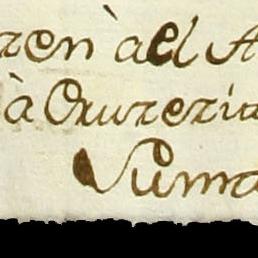 ren à el A
à Oruzeria
Suma